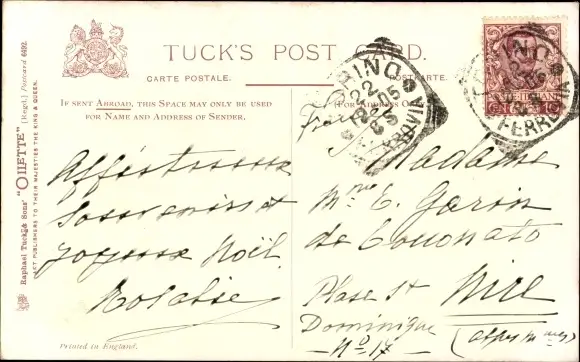 TUCK'S POST CARD.
CARTE POSTALE. POSTKARTE.
IF SENT ABROAD, THIS SPACE MAY ONLY BE USED
FOR NAME AND ADDRESS OF SENDER.
(FOR ADDRESS
TORINO
22
12 05
FERROVIA
TORINO
FERROVIA
Raphael Tuck & Sons' "OILETTE" [Regd.] Postcard 6492.
ART PUBLISHERS TO THEIR MAJESTIES THE KING & QUEEN.
Affectueux
souvenirs et
joyeux Noël
Madame
Mme E. Garin
de Coconato
Place St
Dominique
No 17
Nice
(Alpes mmes)
Printed in England.